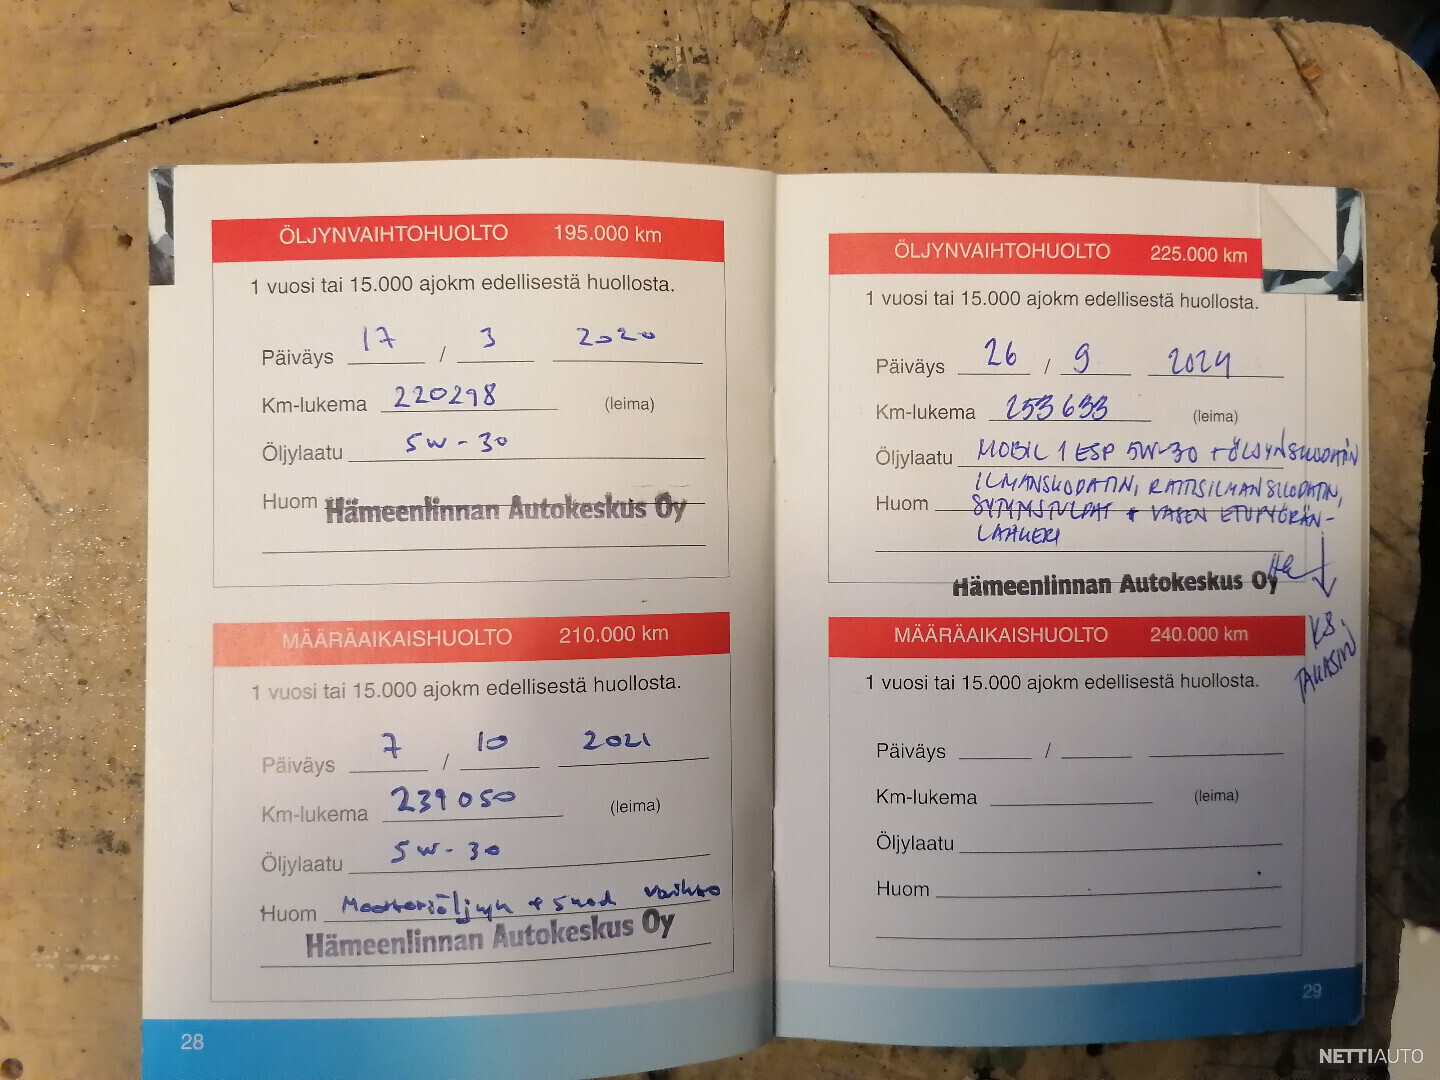 ÖLJYNVAIHTOHUOLTO 195.000 km
1 vuosi tai 15.000 ajokm edellisestä huollosta.
Päiväys 17 / 3 2020
Km-lukema 220298 (leima)
Öljylaatu 5W-30
Huom Hämeenlinnan Autokeskus Oy
MÄÄRÄAIKAISHUOLTO 210.000 km
1 vuosi tai 15.000 ajokm edellisestä huollosta.
Päiväys 7 / 10 2021
Km-lukema 239050 (leima)
Öljylaatu 5W-30
Huom Moottoriöljyn + suod vaihto
Hämeenlinnan Autokeskus Oy
28
ÖLJYNVAIHTOHUOLTO 225.000 km
1 vuosi tai 15.000 ajokm edellisestä huollosta.
Päiväys 26 / 9 2024
Km-lukema 253633 (leima)
Öljylaatu MOBIL 1 ESP 5W-30 + ÖLJYNSUODATIN
ILMANSUODATIN, RAITISILMANSUODATIN,
Huom SYTYTYSTULPAT + VASEN ETUPYÖRÄN-
LAAKERI
Hämeenlinnan Autokeskus Oy
KS.
TAKASIVU
MÄÄRÄAIKAISHUOLTO 240.000 km
1 vuosi tai 15.000 ajokm edellisestä huollosta.
Päiväys /
Km-lukema (leima)
Öljylaatu
Huom
29
NETTIAUTO